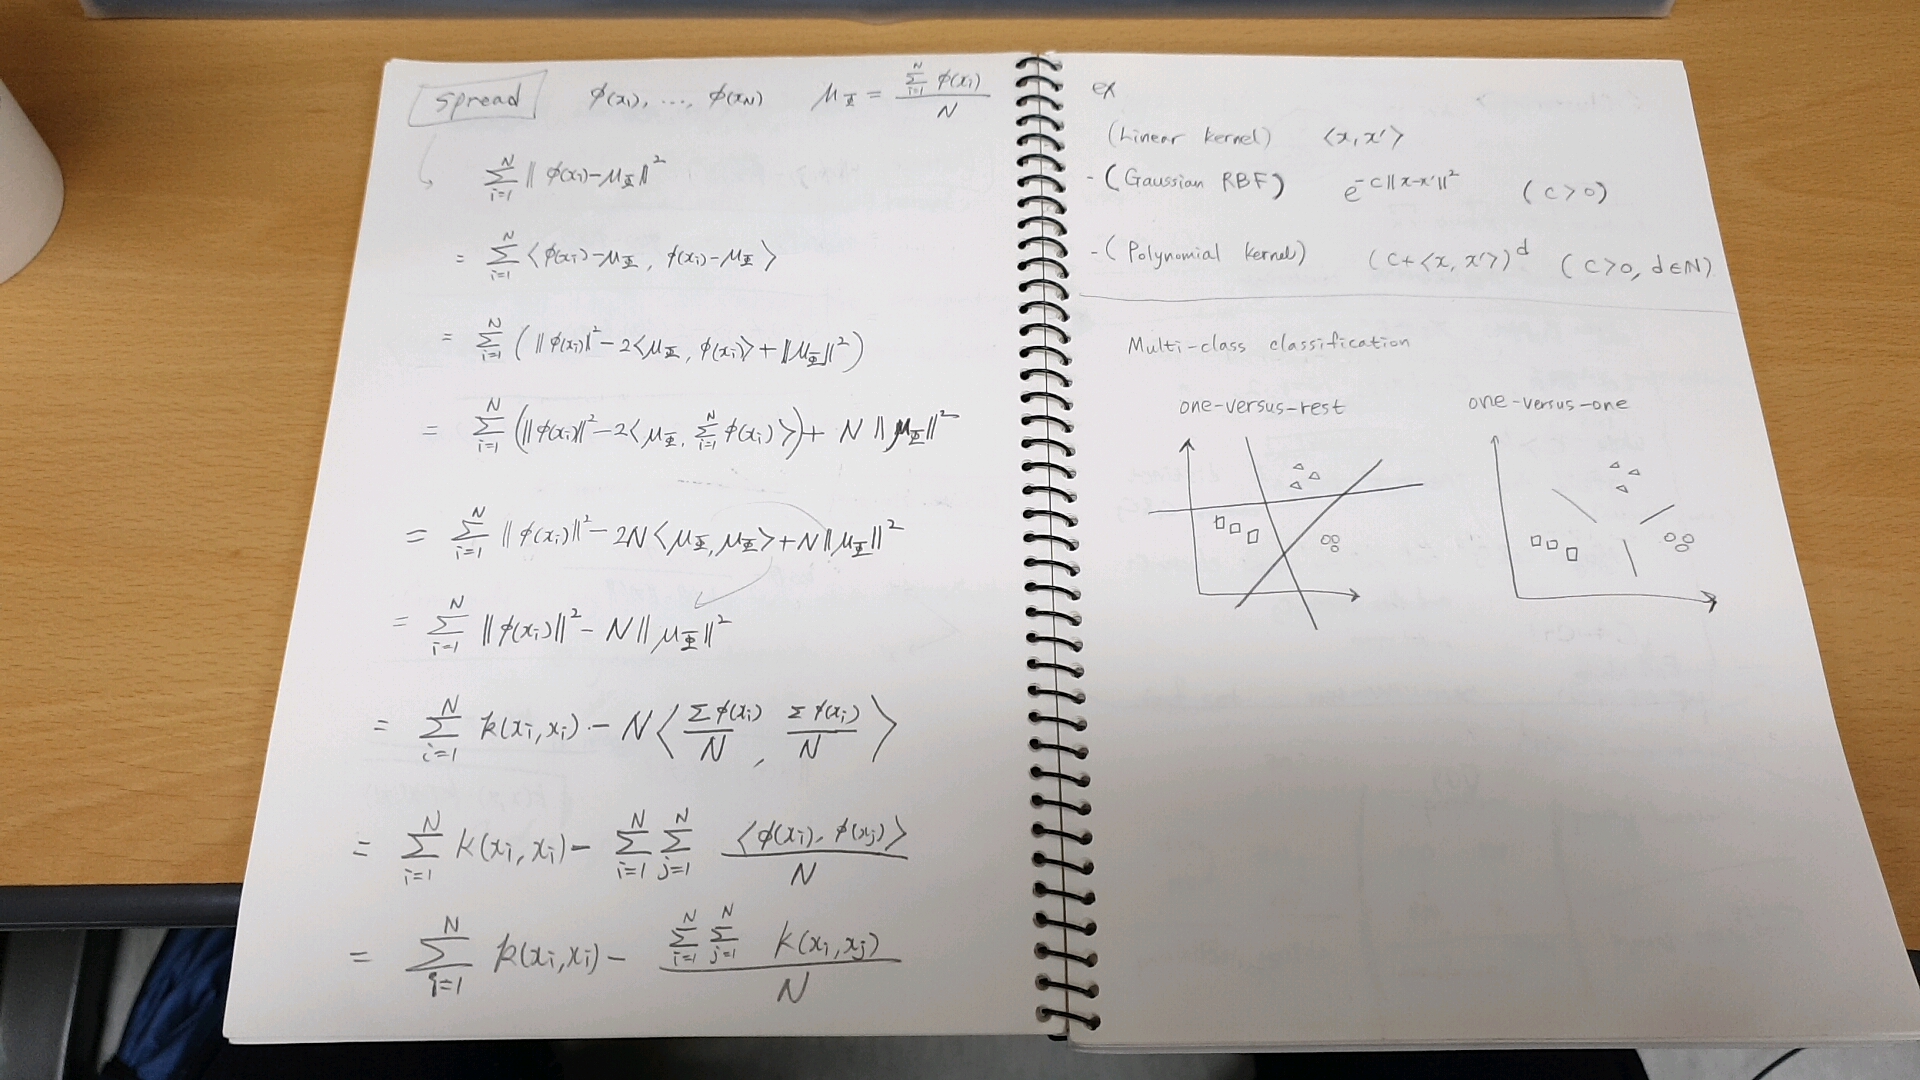 spread φ(x₁), ..., φ(x_N) μ_Φ = \frac{\sum_{i=1}^{N} φ(x_i)}{N}
\sum_{i=1}^{N} ‖φ(x_i)-μ_Φ‖²
= \sum_{i=1}^{N} ⟨φ(x_i)-μ_Φ, φ(x_i)-μ_Φ⟩
= \sum_{i=1}^{N} (‖φ(x_i)‖² - 2⟨μ_Φ, φ(x_i)⟩ + ‖μ_Φ‖²)
= \sum_{i=1}^{N} (‖φ(x_i)‖² - 2⟨μ_Φ, \sum_{i=1}^{N} φ(x_i)⟩) + N‖μ_Φ‖²
= \sum_{i=1}^{N} ‖φ(x_i)‖² - 2N⟨μ_Φ, μ_Φ⟩ + N‖μ_Φ‖²
= \sum_{i=1}^{N} ‖φ(x_i)‖² - N‖μ_Φ‖²
= \sum_{i=1}^{N} k(x_i, x_i) - N⟨\frac{Σφ(x_i)}{N}, \frac{Σφ(x_i)}{N}⟩
= \sum_{i=1}^{N} k(x_i, x_i) - \sum_{i=1}^{N} \sum_{j=1}^{N} \frac{⟨φ(x_i), φ(x_j)⟩}{N}
= \sum_{i=1}^{N} k(x_i, x_i) - \frac{\sum_{i=1}^{N} \sum_{j=1}^{N} k(x_i, x_j)}{N}
ex
(Linear kernel) ⟨x, x'⟩
- (Gaussian RBF) e^{-c‖x-x'‖²} (c>0)
- (Polynomial kernel) (c+⟨x, x'⟩)^d (c>0, d∈N)
Multi-class classification
one-versus-rest one-versus-one